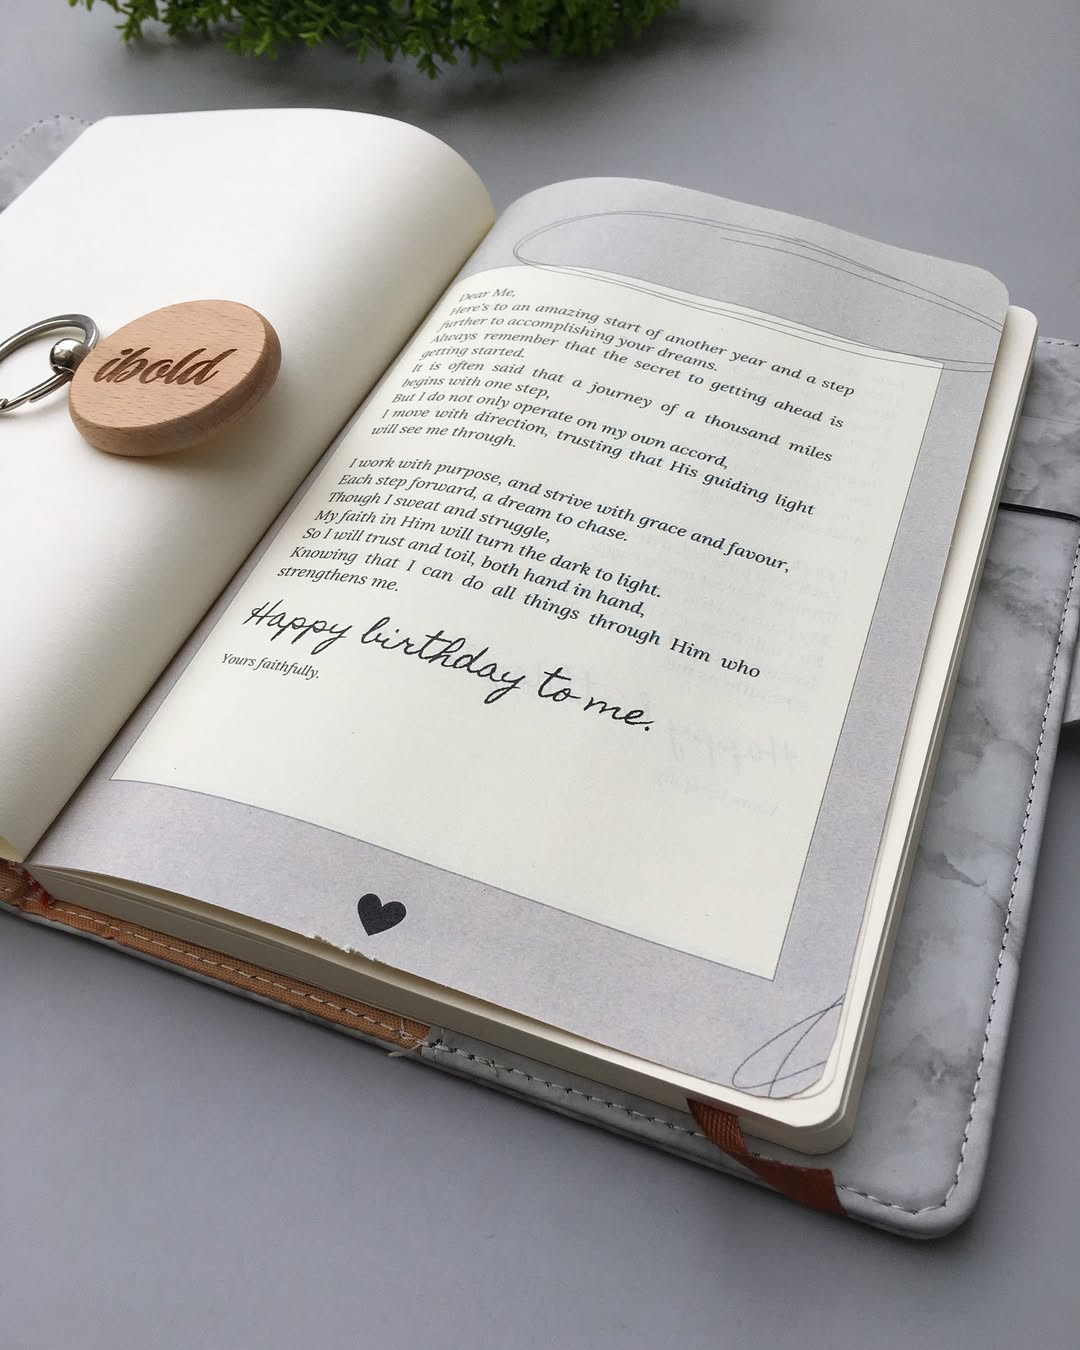 ibold
Dear Me,
Here's to an amazing start of another year and a step
further to accomplishing your dreams.
Always remember that the secret to getting ahead is
getting started.
It is often said that a journey of a thousand miles
begins with one step,
But I do not only operate on my own accord,
I move with direction, trusting that His guiding light
will see me through.
I work with purpose, and strive with grace and favour,
Each step forward, a dream to chase.
Though I sweat and struggle,
My faith in Him will turn the dark to light.
So I will trust and toil, both hand in hand,
Knowing that I can do all things through Him who
strengthens me.
Happy birthday to me.
Yours faithfully.